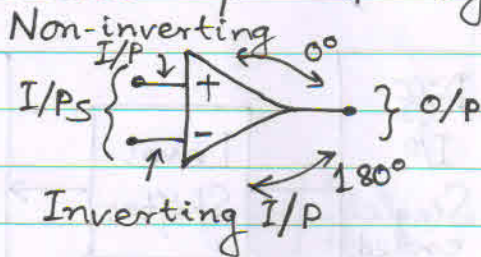 Non-inverting
I/P
0°
I/Ps
+
-
O/P
180°
Inverting I/P